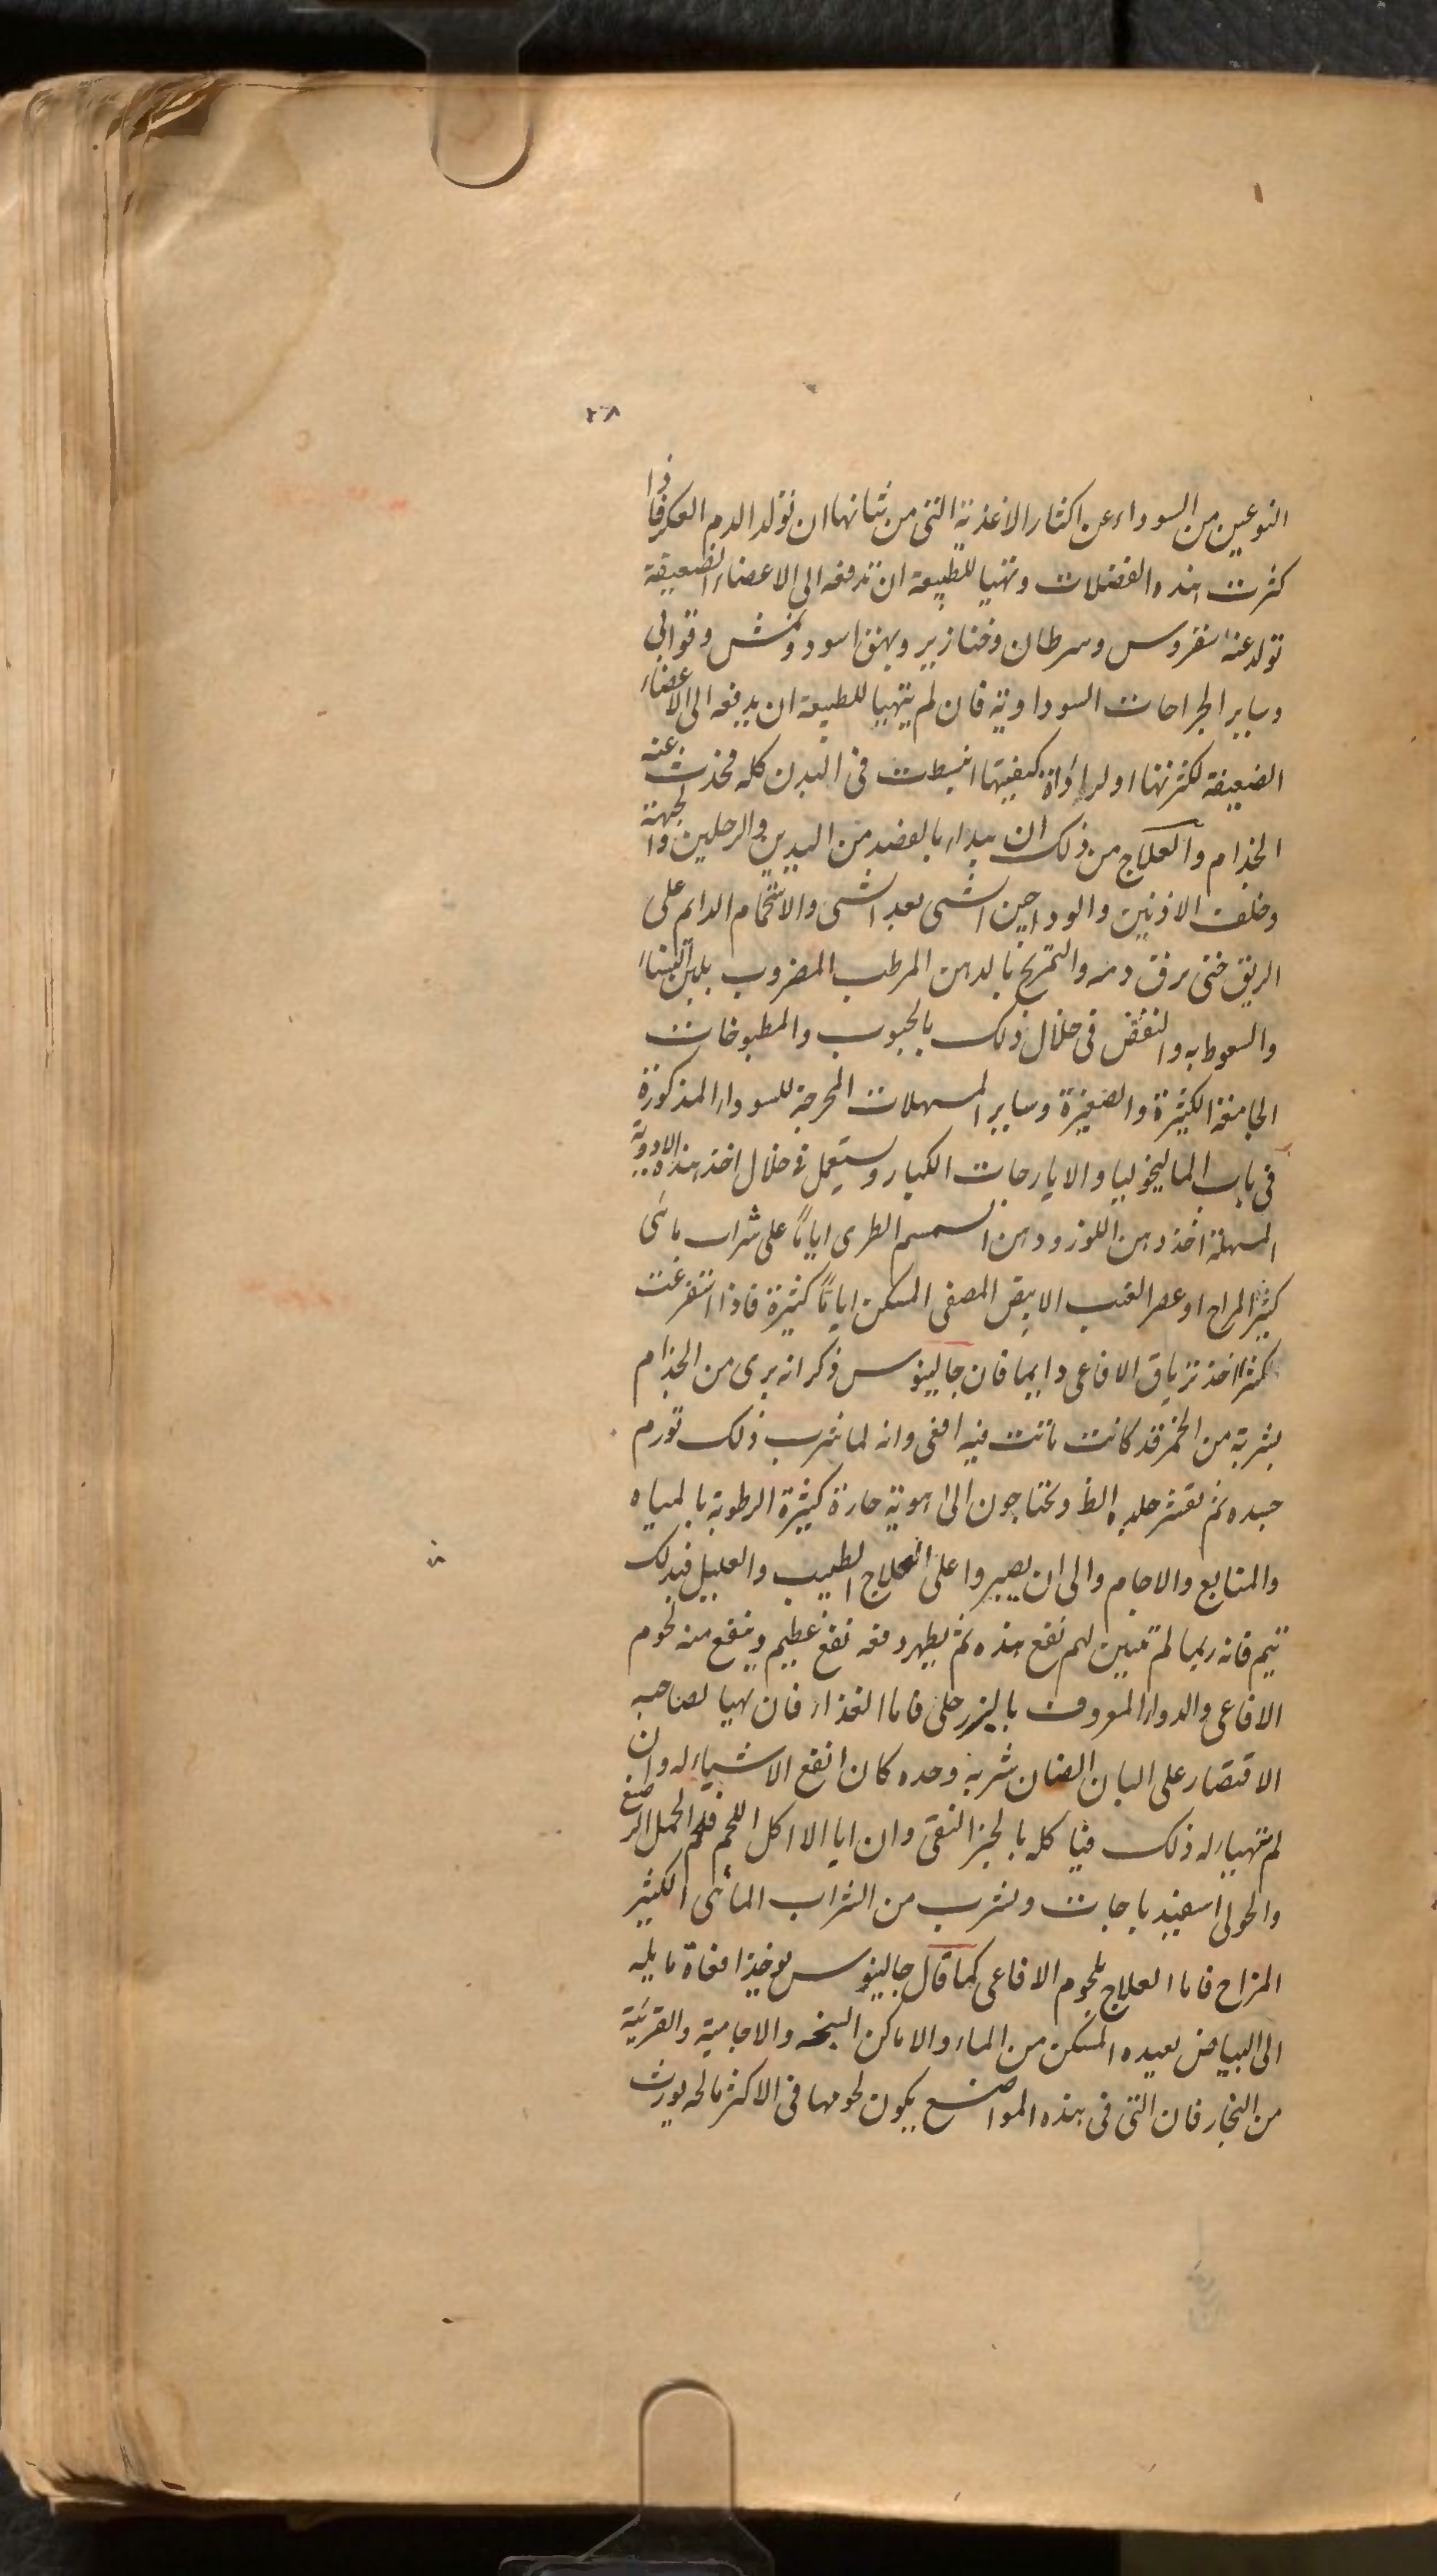 ٢٨
النوعين من السوداء عن اكثار الاغذية التى من شانها ان تولد الدم العكر فاذا
كثرت هذه الفضلات وتهيا للطبيعة ان تدفعه الى الاعضاء الضعيفة
تولد عنه سقروس وسرطان وخنازير وبهق اسود ونمش وقوابى
وساير الجراحات السوداوية فان لم يتهيا للطبيعة ان يدفعه الى الاعضاء
الضعيفة لكثرتها او لرداءة كيفيتها انبسطت فى البدن كله فحدث عنه
الجذام والعلاج من ذلك ان يبداء بالفصد من اليدين والرجلين والجبهة
وخلف الاذنين والوداجين الشى بعد الشى والاستحمام الدايم على
الريق حتى يرق دمه والتمريخ بالدهن المرطب المضروب بلبن النساء
والسعوط به والنفض فى خلال ذلك بالحبوب والمطبوخات
الجامعة الكثيرة والصغيرة وساير المسهلات المخرجة للسوداء المذكورة
فى باب الماليخوليا والايارجات الكبار ويستعمل فى خلال اخذ هذه الادوية
المسهلة اخذ دهن اللوز ودهن السمسم الطرى اياماً على شراب مائى
كثير المزاج او عصر العنب الابيض المصفى المسكن اياماً كثيرة فاذا استفرغت
كثيرا اخذ ترياق الافاعى دايما فان جالينوس ذكر انه برى من الجذام
بشربة من الخمر قد كانت ماتت فيه افعى وانه لما شرب ذلك تورم
جسده ثم تقشر جلده الظ ويحتاجون الى اهوية حارة كثيرة الرطوبة بالمياه
والمنابع والاجام والى ان يصبروا على العلاج الطبيب والعليل فبذلك
يتم فانه ربما لم تتبين لهم نفع هذه ثم يظهر دفعه نفع عظيم وينفع منه لحوم
الافاعى والدواء المعروف بالبزرجلى فاما الغذاء فان تهيا لصاحبه
الاقتصار على البان الضان شربه وحده كان انفع الاشياء له وان
لم يتهيا له ذلك فياكله بالخبز النقى وان ابا الا اكل اللحم فلحم الحمل الرضع
والحولى اسفيدباجات ويشرب من الشراب المائى الكثير
المزاج فاما العلاج بلحوم الافاعى كما قال جالينوس يوخذ افعاة مايله
الى البياض بعيده المسكن من الماء والاماكن السبخه والاجامية والقريبة
من البخار فان التى فى هذه المواضع يكون لحومها فى الاكثر مالحه يورث